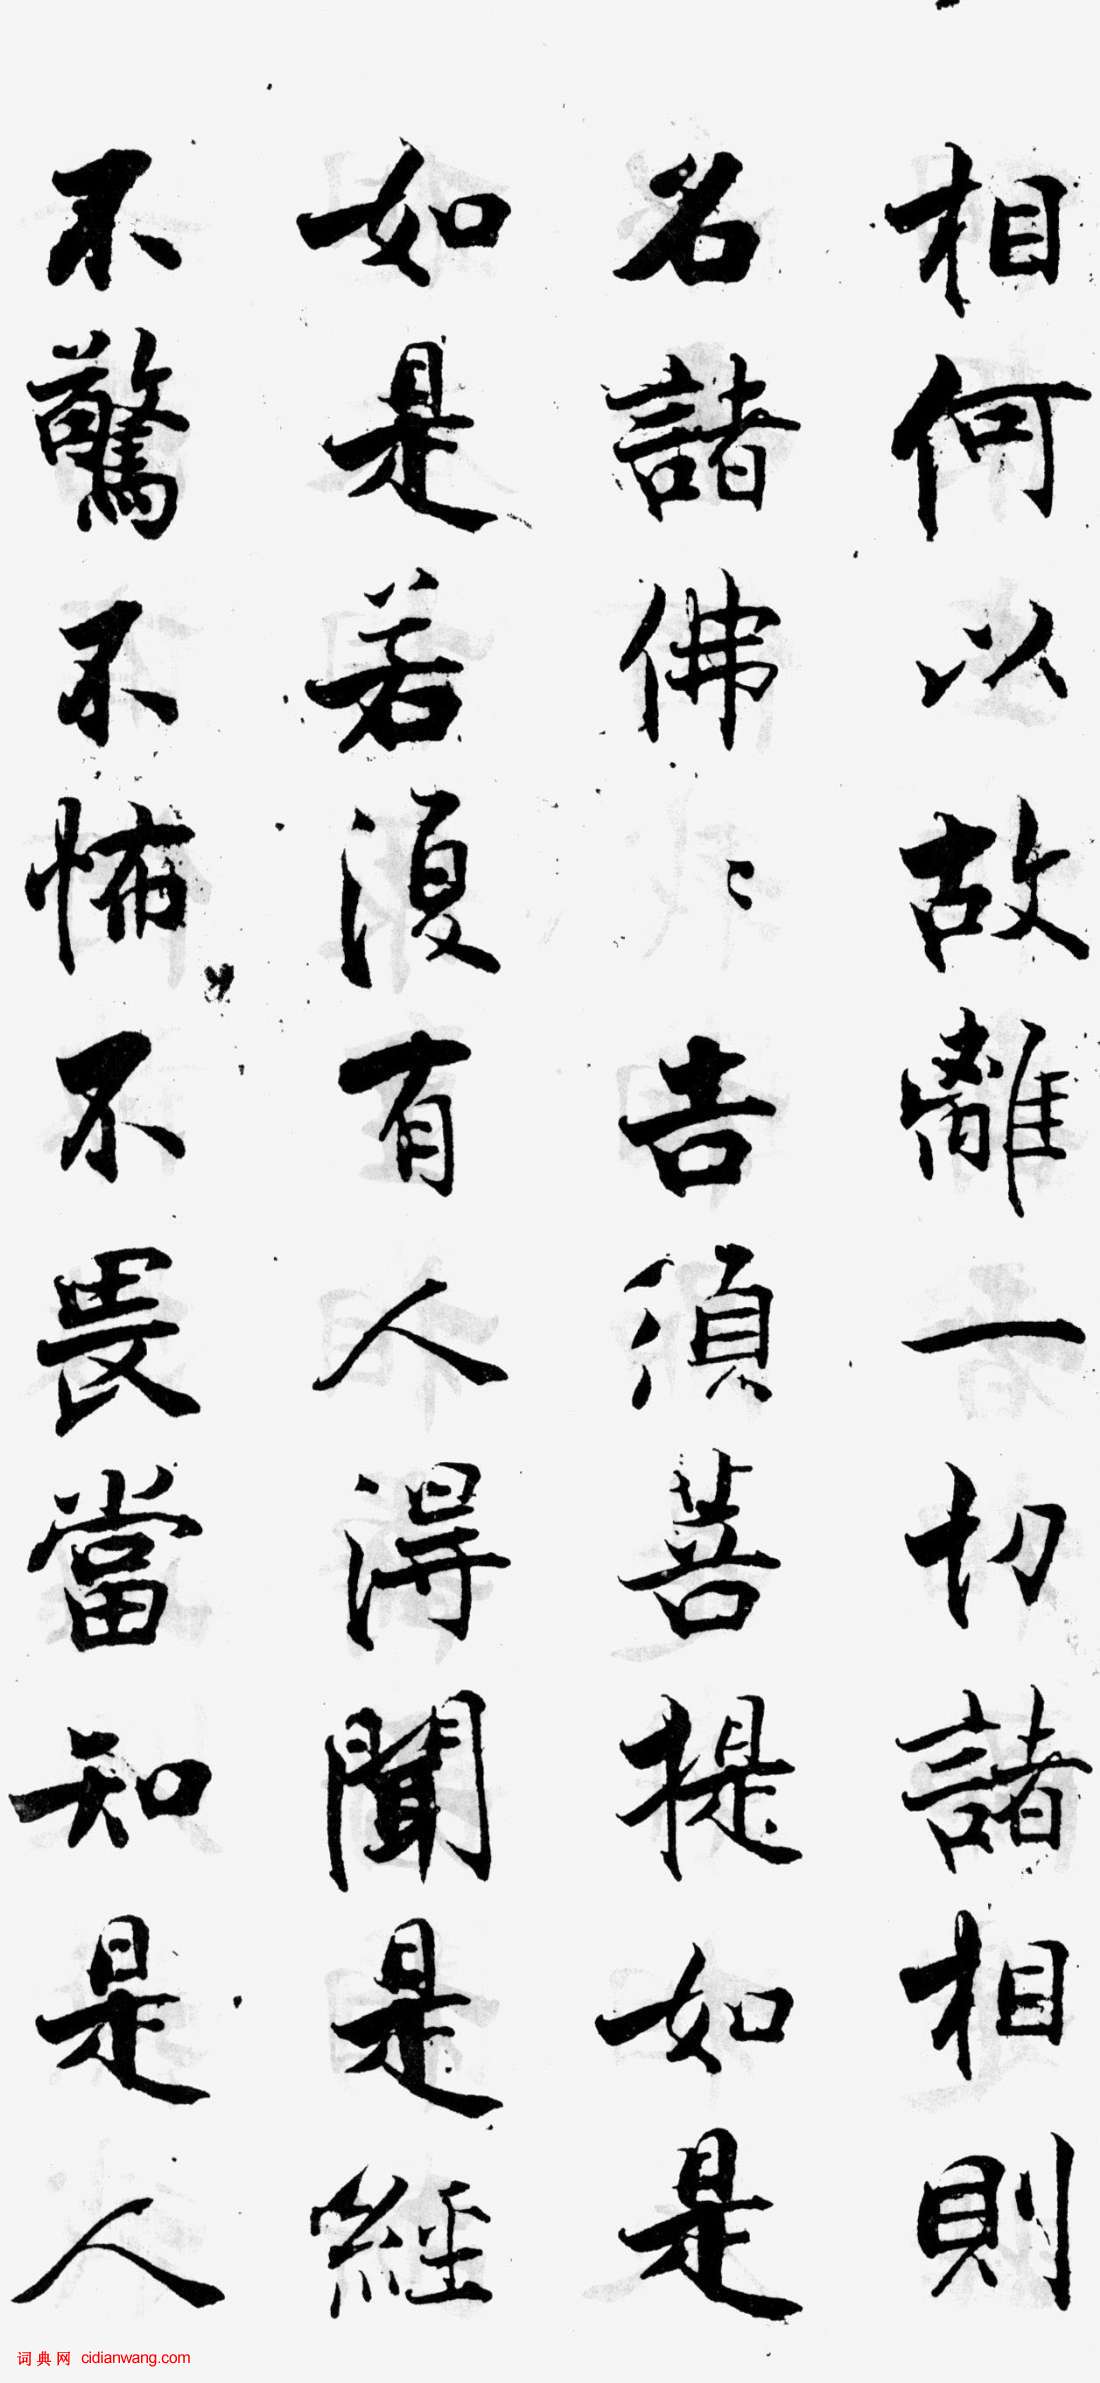 相何以故離一切諸相則
名諸佛〻告須菩提如是
如是若復有人得聞是經
不驚不怖不畏當知是人
词典网 cidianwang.com